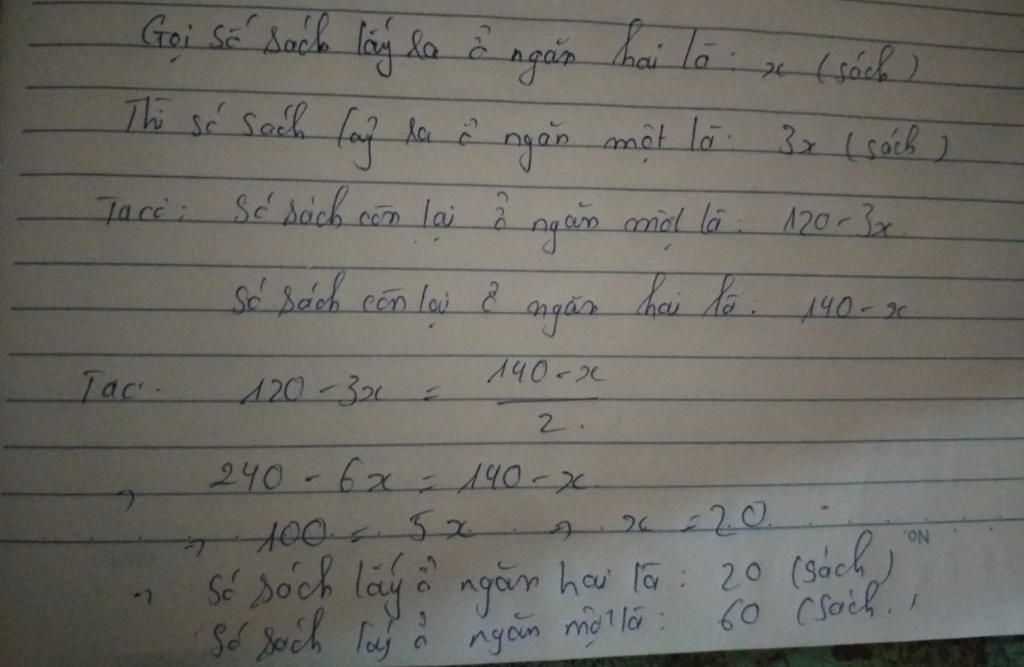 Gọi số sách lấy ra ở ngăn hai là: x (sách)
Thì số sách lấy ra ở ngăn một là: 3x (sách)
Ta có: Số sách còn lại ở ngăn một là: 120 - 3x
Số sách còn lại ở ngăn hai là: 140 - x
Ta có: 120 - 3x = (140 - x)/2.
→ 240 - 6x = 140 - x
→ 100 = 5x → x = 20
NO.
→ Số sách lấy ở ngăn hai là: 20 (sách)
Số sách lấy ở ngăn một là: 60 (sách.)